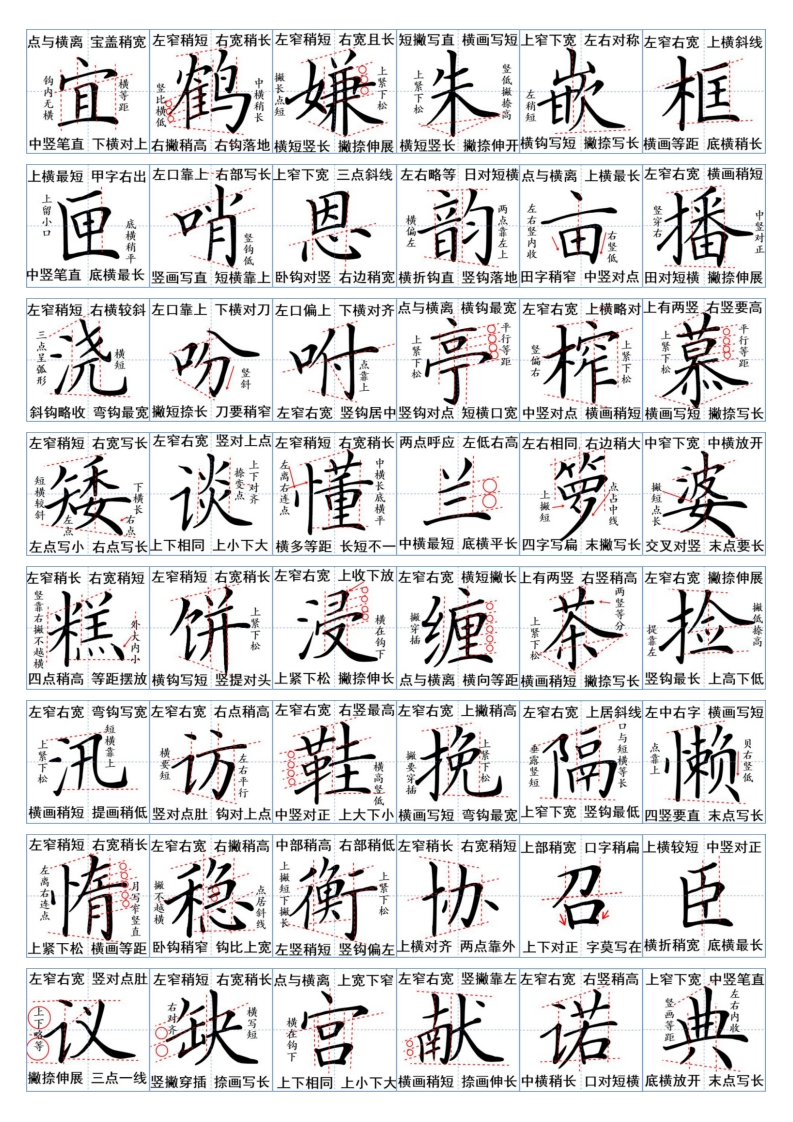 点与横离 宝盖稍宽
钩内无横
宜
横等距
中竖笔直 下横对上
左窄稍短 右宽稍长
竖比横低
鹤
中横稍长
右撇稍高 右钩落地
左窄稍短 右宽且长
撇长点短
嫌
上紧下松
横短竖长 撇捺伸展
短撇写直 横画写短
上紧下松
朱
竖低撇捺高
横短竖长 撇捺伸开
上窄下宽 左右对称
左稍短
嵌
横钩写短 撇捺写长
左窄右宽 上横斜线
框
横画等距 底横稍长
上横最短 甲字右出
上留小口
匣
底横稍平
中竖笔直 底横最长
左口靠上 右部写长
哨
竖钩低
竖画写直 短横靠上
上窄下宽 三点斜线
恩
卧钩对竖 右边稍宽
左右略等 日对短横
横偏左
韵
两点靠左上
横折钩直 竖钩落地
点与横离 上横最长
左右竖内收
亩
右竖低
田字稍窄 中竖对点
左窄右宽 横画稍短
竖穿右
播
中竖对正
田对短横 撇捺伸展
左窄稍短 右横较斜
三点呈弧形
浇
横短
斜钩略收 弯钩最宽
左口靠上 下横对刀
吩
竖斜
撇短捺长 刀要稍窄
左口偏上 下横对齐
咐
点靠上
左窄右宽 竖钩居中
点与横离 横钩最宽
上紧下松
亭
平行等距
竖钩对点 短横口宽
左窄右宽 上横略对
竖偏右
榨
上紧下松
中竖对点 横画稍短
上有两竖 右竖要高
上紧下松
慕
平行等距
横画写短 撇捺写长
左窄稍短 右宽写长
短横较斜
矮
左点
下横长
右点
左点写小 右点写长
左窄右宽 竖对上点
谈
捺变点
上下对齐
上下相同 上小下大
左窄稍短 右宽稍长
左离右连点
懂
中横长底横平
横多等距 长短不一
两点呼应 左低右高
兰
中横最短 底横平长
左右相同 右边稍大
上撇短
箩
点占中线
四字写扁 末撇写长
中窄下宽 中横放开
撇短点长
婆
交叉对竖 末点要长
左窄稍长 右宽稍短
竖靠右撇不越横
糕
外大内小
四点稍高 等距摆放
左窄稍短 右宽稍长
饼
上紧下松
横钩写短 竖提对头
左窄右宽 上收下放
浸
横在钩下
上紧下松 撇捺伸长
左窄右宽 横短撇长
撇穿插
缠
点与横离 横向等距
上有两竖 右竖稍高
上紧下松
茶
两竖等分
横画稍短 撇捺写长
左窄右宽 撇捺伸展
提靠左
捡
撇低捺高
竖钩最长 上高下低
左窄右宽 弯钩写宽
上紧下松
汛
短横靠上
横画稍短 提画稍低
左窄右宽 右点稍高
横要短
访
左右平行
竖对点肚 钩对上点
左窄右宽 右竖最高
鞋
横高竖低
中竖对正 上大下小
左窄右宽 上撇稍高
撇要穿插
挽
上紧下松
横画写短 弯钩最宽
左窄右宽 上居斜线
垂露竖短
隔
口与短横等长
上窄下宽 竖钩最低
左中右字 横画写短
点靠上
懒
贝右竖低
四竖要直 末点写长
左窄稍短 右宽稍长
左离右连点
惰
月写窄竖直
上紧下松 横画等距
左窄右宽 右撇稍高
撇不越横
稳
点居斜线
卧钩稍窄 钩比上宽
中部稍高 右部稍低
上撇短下撇长
衡
上紧下松
左竖稍短 竖钩偏左
左窄稍长 右宽稍短
协
上横对齐 两点靠外
上部稍宽 口字稍扁
召
上下对正 字莫写在
上横较短 中竖对正
臣
横折稍宽 底横最长
左窄右宽 竖对点肚
上下略等
议
撇捺伸展 三点一线
左窄稍短 右宽稍长
右对齐
缺
横写短
竖撇穿插 捺画写长
点与横离 上宽下窄
横在钩下
宫
上下相同 上小下大
左窄右宽 竖撇靠左
献
横画稍短 捺画伸长
左窄右宽 右竖稍高
诺
中横稍长 口对短横
上窄下宽 中竖笔直
竖画等距
典
左右内收
底横放开 末点写长